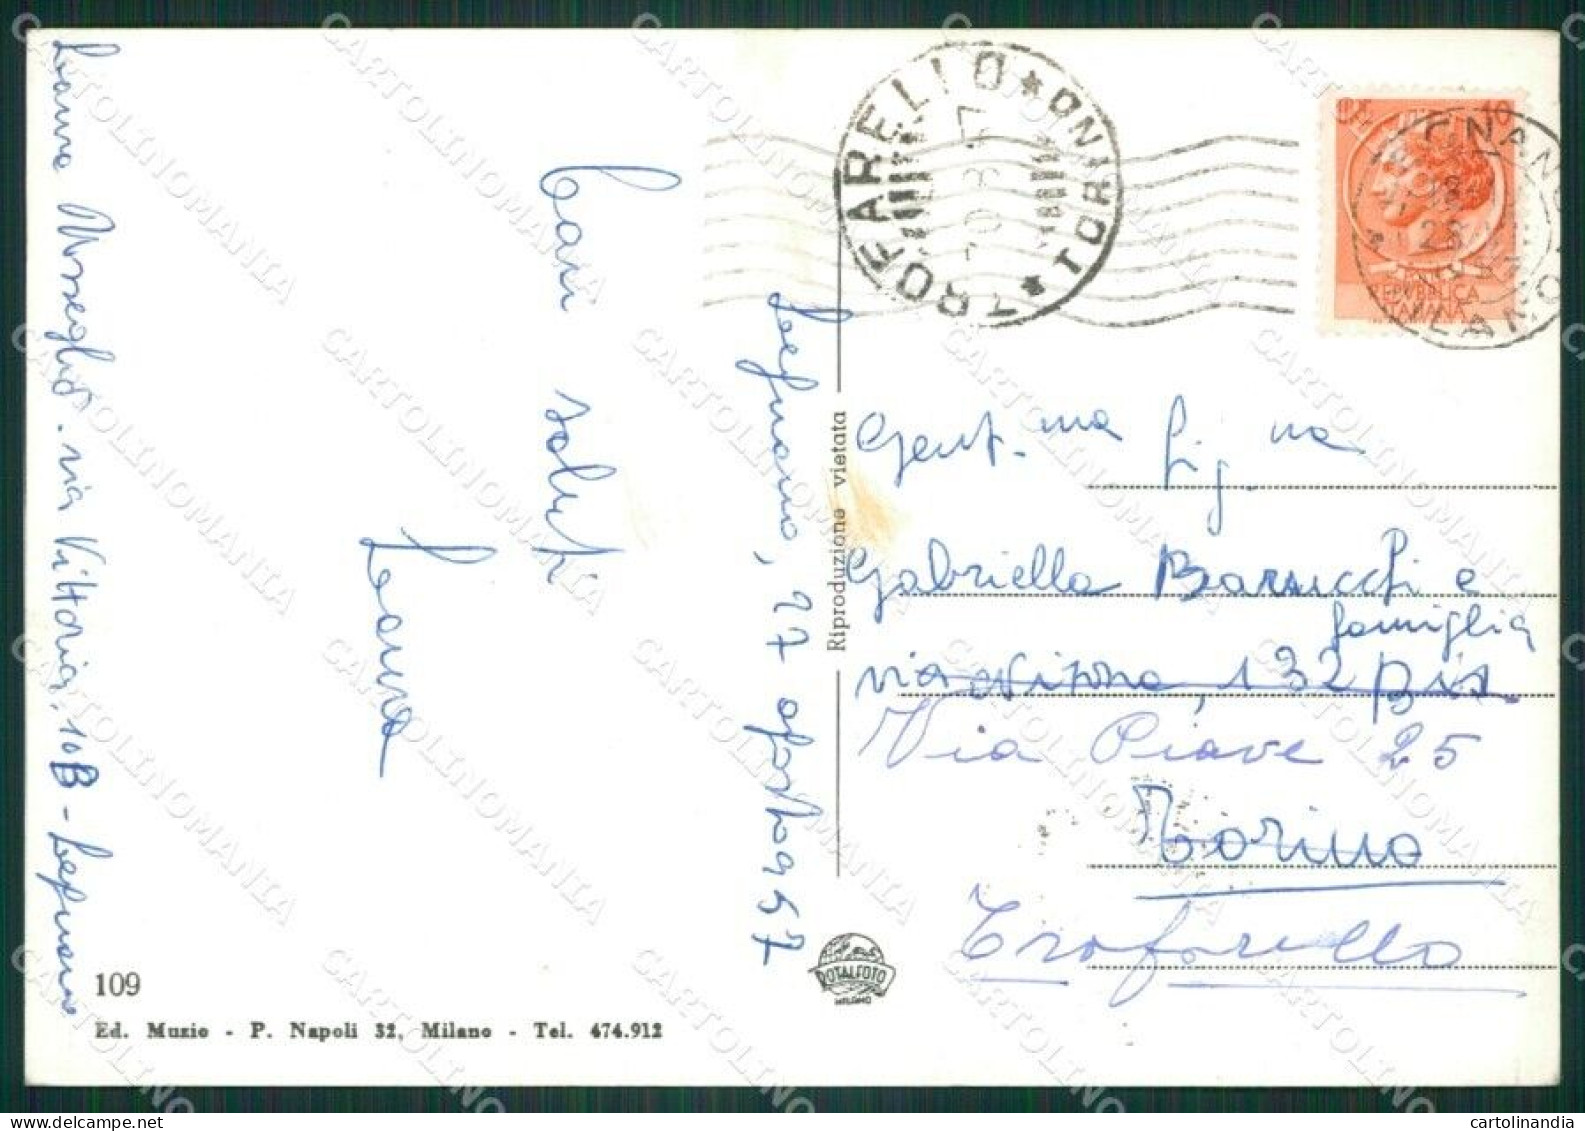 Laura Musseglio. via Vittoria. 10B - Legnano
Cari saluti
Laura
Legnano, 27 agosto 957
109
Ed. Muzio - P. Napoli 32, Milano - Tel. 474.912
Riproduzione vietata
ROTALFOTO
MILANO
TROFARELLO * TORINO *
10
REPUBBLICA
ITALIANA
MILANO
Gent.ma Sig.na
Gabriella Barucchi e
famiglia
via Nizza, 132 bis.
Via Piave 25
Torino
Trofarello
CARTOLINOMANIA
cartolinandia